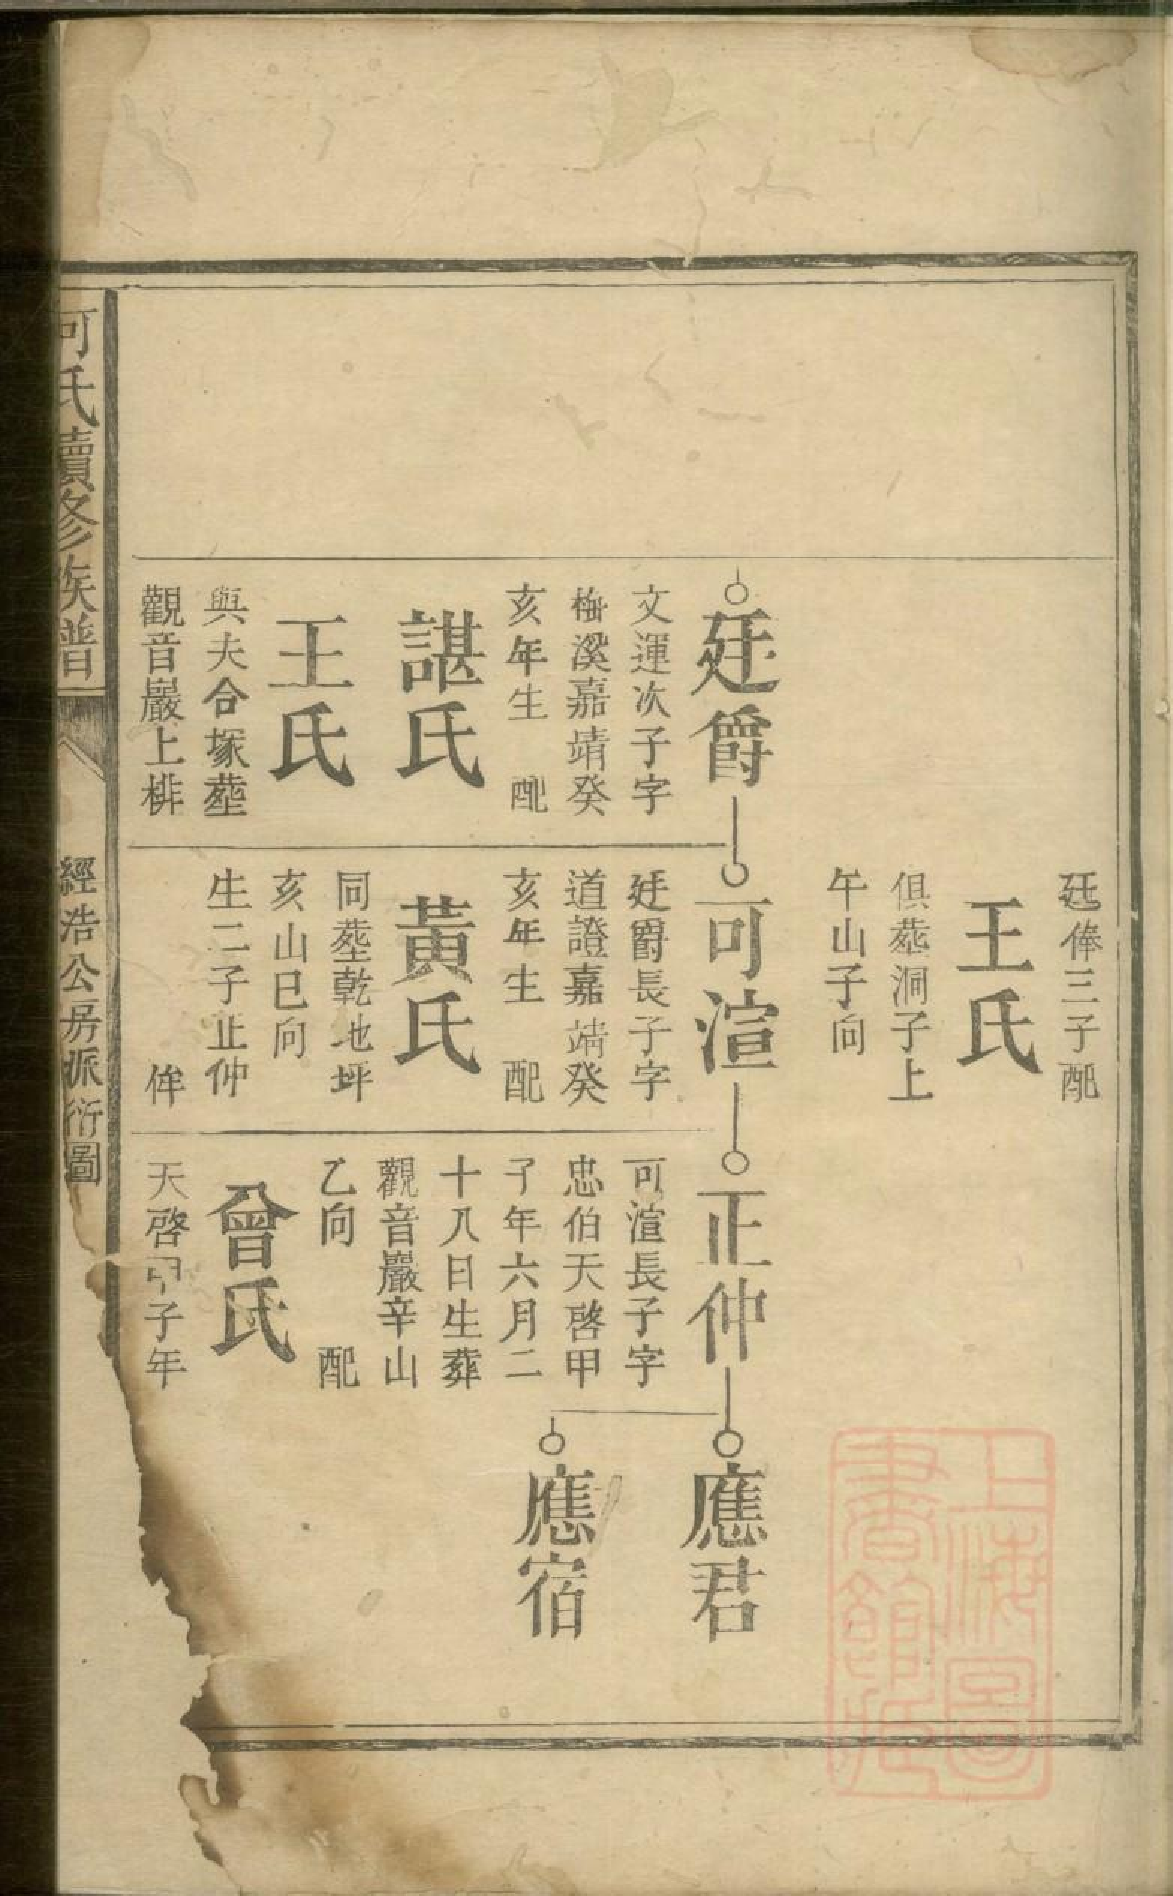 廷俸三子配
王氏
俱塟洞子上
午山子向
廷爵
文運次子字
梅溪嘉靖癸
亥年生 配
諶氏
王氏
與夫合塚塟
觀音巖上排
可渲
廷爵長子字
道證嘉靖癸
亥年生 配
黃氏
同塟乾地坪
亥山巳向
生二子正仲
侔
正仲
可渲長子字
忠伯天啓甲
子年六月二
十八日生葬
觀音巖辛山
乙向 配
曾氏
天啓甲子年
應君
應宿
何氏續修族譜
經浩公房派衍圖
上海圖
書館藏